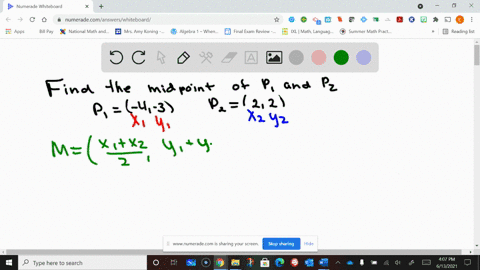 Numerade Whiteboard
numerade.com/answers/whiteboard/
Apps
Bill Pay
National Math and...
Algebra 1 -
Final Exam Review -...
IXL | Math, Language...
Reading list
Find the midpoint of P₁ and P₂
P₁=(-4,-3) P₂=(2,2)
x₁ y₁ x₂ y₂
M=(x₁+x₂/2, y₁+y
www.numerade.com is sharing your screen.
Stop sharing
Hide
Type here to search
4:07 PM
6/13/2021